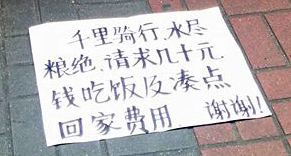 千里骑行,水尽
粮绝,请求几十元
钱吃饭及凑点
回家费用 谢谢!